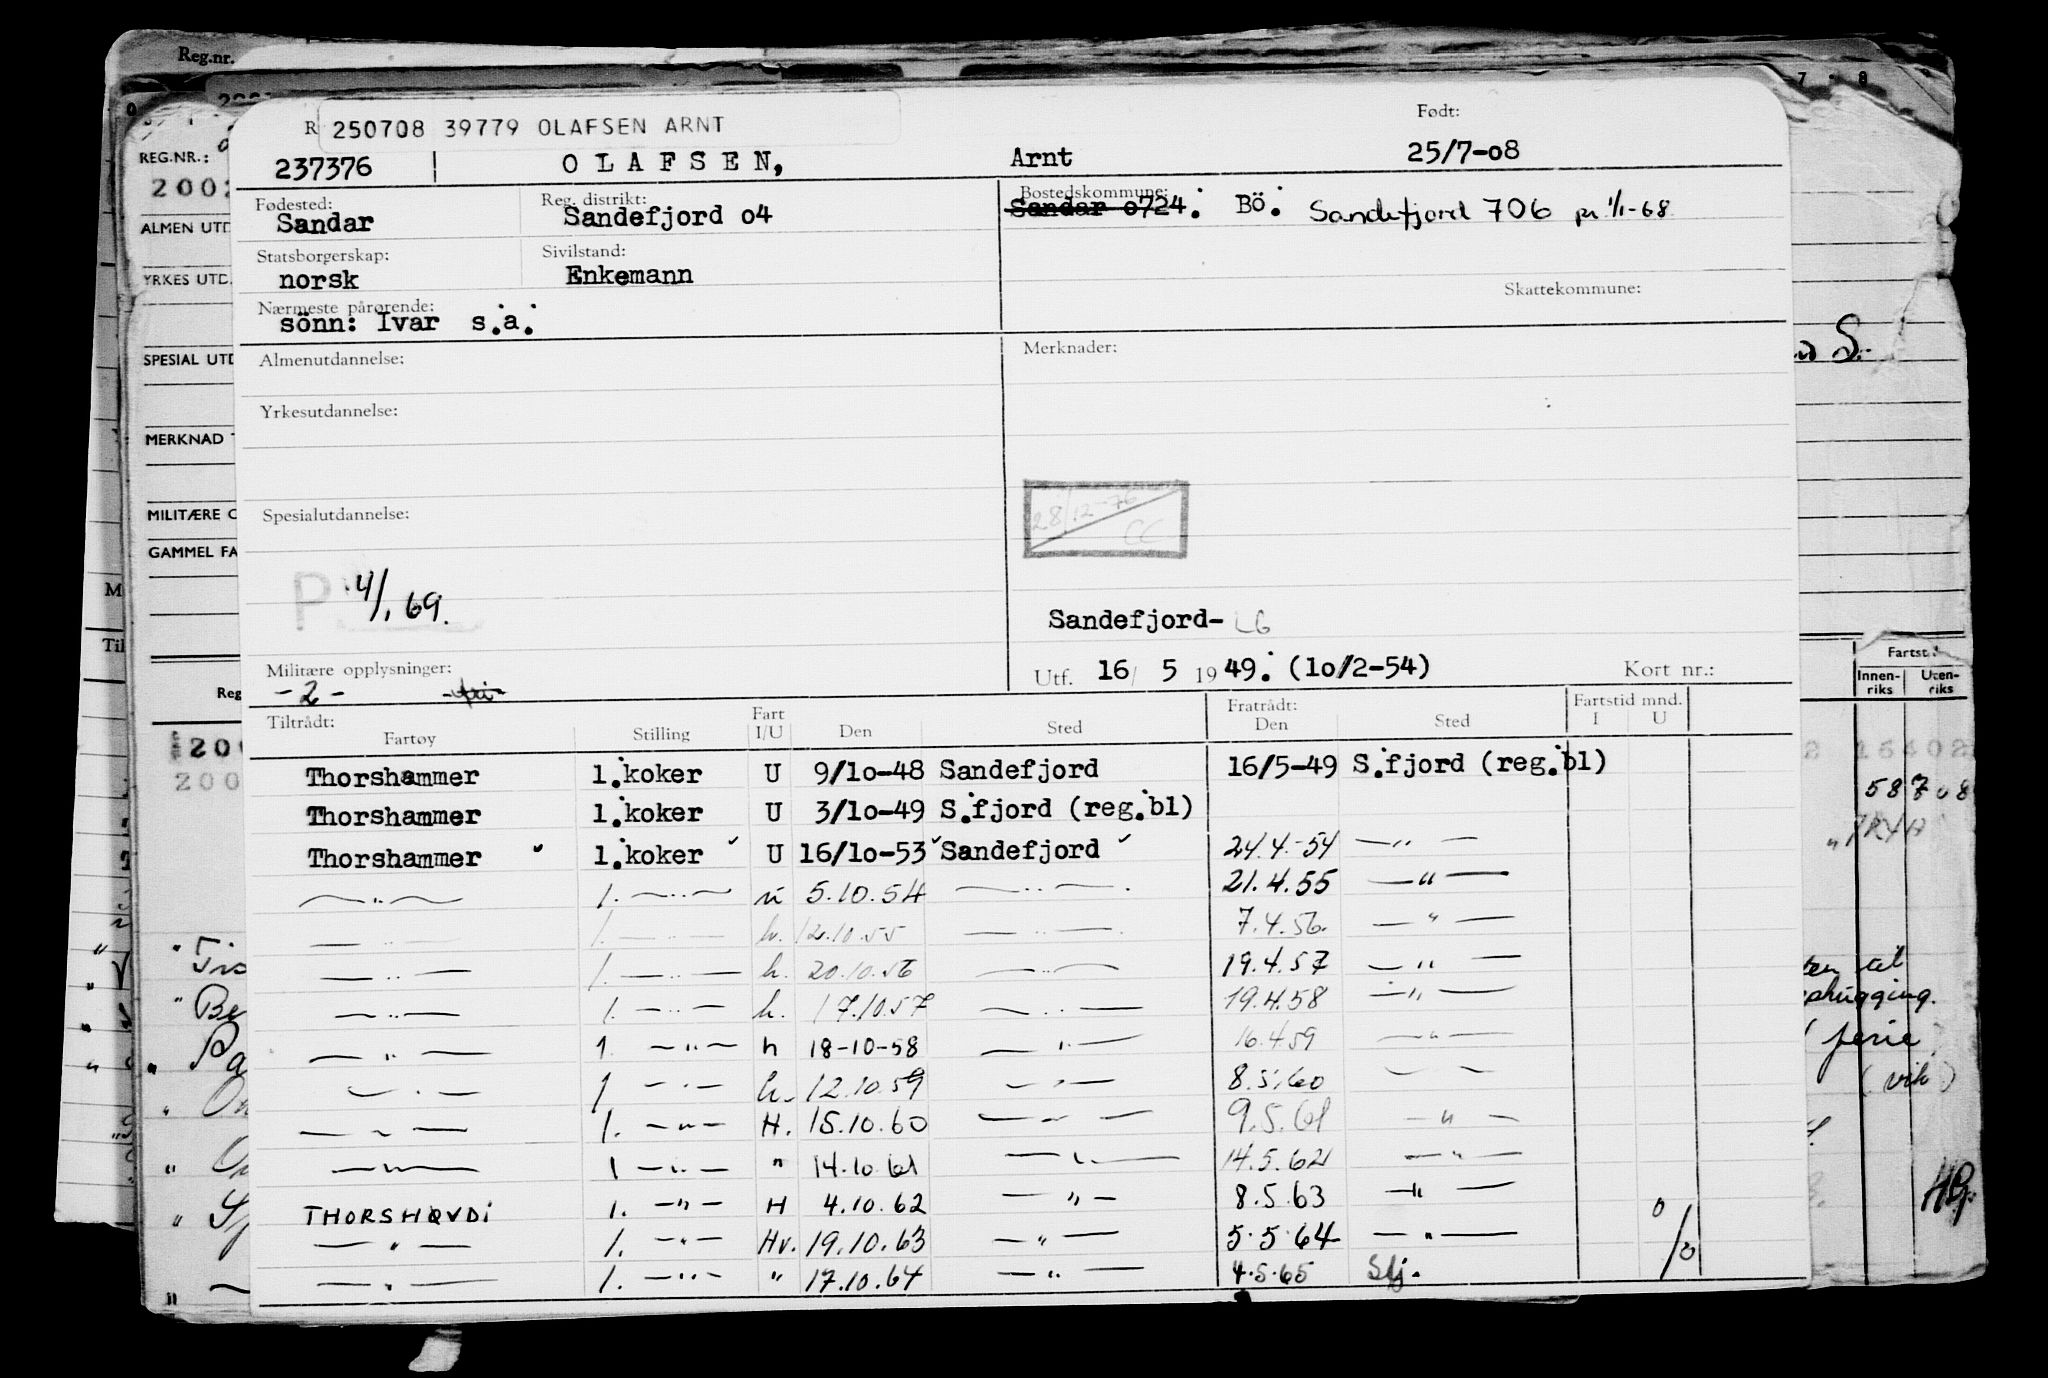 Reg.nr.
7 8
R 250708 39779 OLAFSEN ARNT
Født:
237376 OLAFSEN, Arnt 25/7-08
Fødested: Sandar
Reg. distrikt: Sandefjord o4
Bostedskommune: Sandar o724. Bö. Sandefjord 706 pr 1/1-68
Statsborgerskap: norsk
Sivilstand: Enkemann
Skattekommune:
Nærmeste pårørende: sönn: Ivar s.a.
Almenutdannelse:
Merknader:
Yrkesutdannelse:
28/12-76
CC
Spesialutdannelse:
P 4/1 69.
Sandefjord- LG
Militære opplysninger:
-2-
Utf. 16/ 5 1949. (10/2-54)
Kort nr.:
Tiltrådt: Fartøy Stilling Fart I/U Den Sted Fratrådt: Den Sted Fartstid mnd. I U
Thorshammer 1.koker U 9/1o-48 Sandefjord 16/5-49 S.fjord (reg.bl)
Thorshammer 1.koker U 3/1o-49 S.fjord (reg.bl)
Thorshammer 1.koker U 16/1o-53 Sandefjord 24.4.-54 —"—
—"— 1. —"— u 5.10.54 —"— 21.4.55 —"—
—"— 1. —"— h. 12.10.55 —"— 7.4.56. —"—
—"— 1. —"— h. 20.10.56 —"— 19.4.57 —"—
—"— 1. —"— h. 17.10.57 —"— 19.4.58 —"—
—"— 1. —"— h 18-10-58 —"— 16.4.59 —"—
—"— 1 —"— h. 12.10.59 —"— 8.5.60 —"—
—"— 1. —"— H. 15.10.60 —"— 9.5.61 —"—
—"— 1 —"— " 14.10.61 —"— 14.5.62 —"—
THORSHØVDI 1. —"— H 4.10.62 —"— 8.5.63 —"—
—"— 1. —"— Hv. 19.10.63 —"— 5.5.64 —"—
—"— 1. —"— " 17.10.64 —"— 4.5.65 Sfj.
REG.NR.:
2002
ALMEN UTD
YRKES UTD.
SPESIAL UTD
MERKNAD
MILITÆRE
GAMMEL FA
Reg
200
200
Be
Pa
Fartst
Innen-riks Uten-riks
ferie
HB